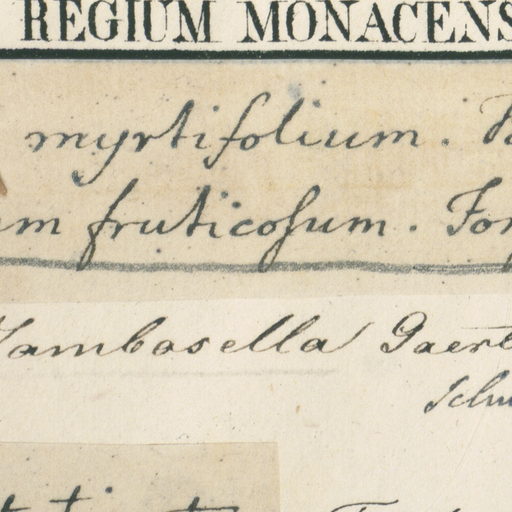 REGIUM MONACENS
myrtifolium.
um fruticosum. For
Jambosella Gaert
Schu